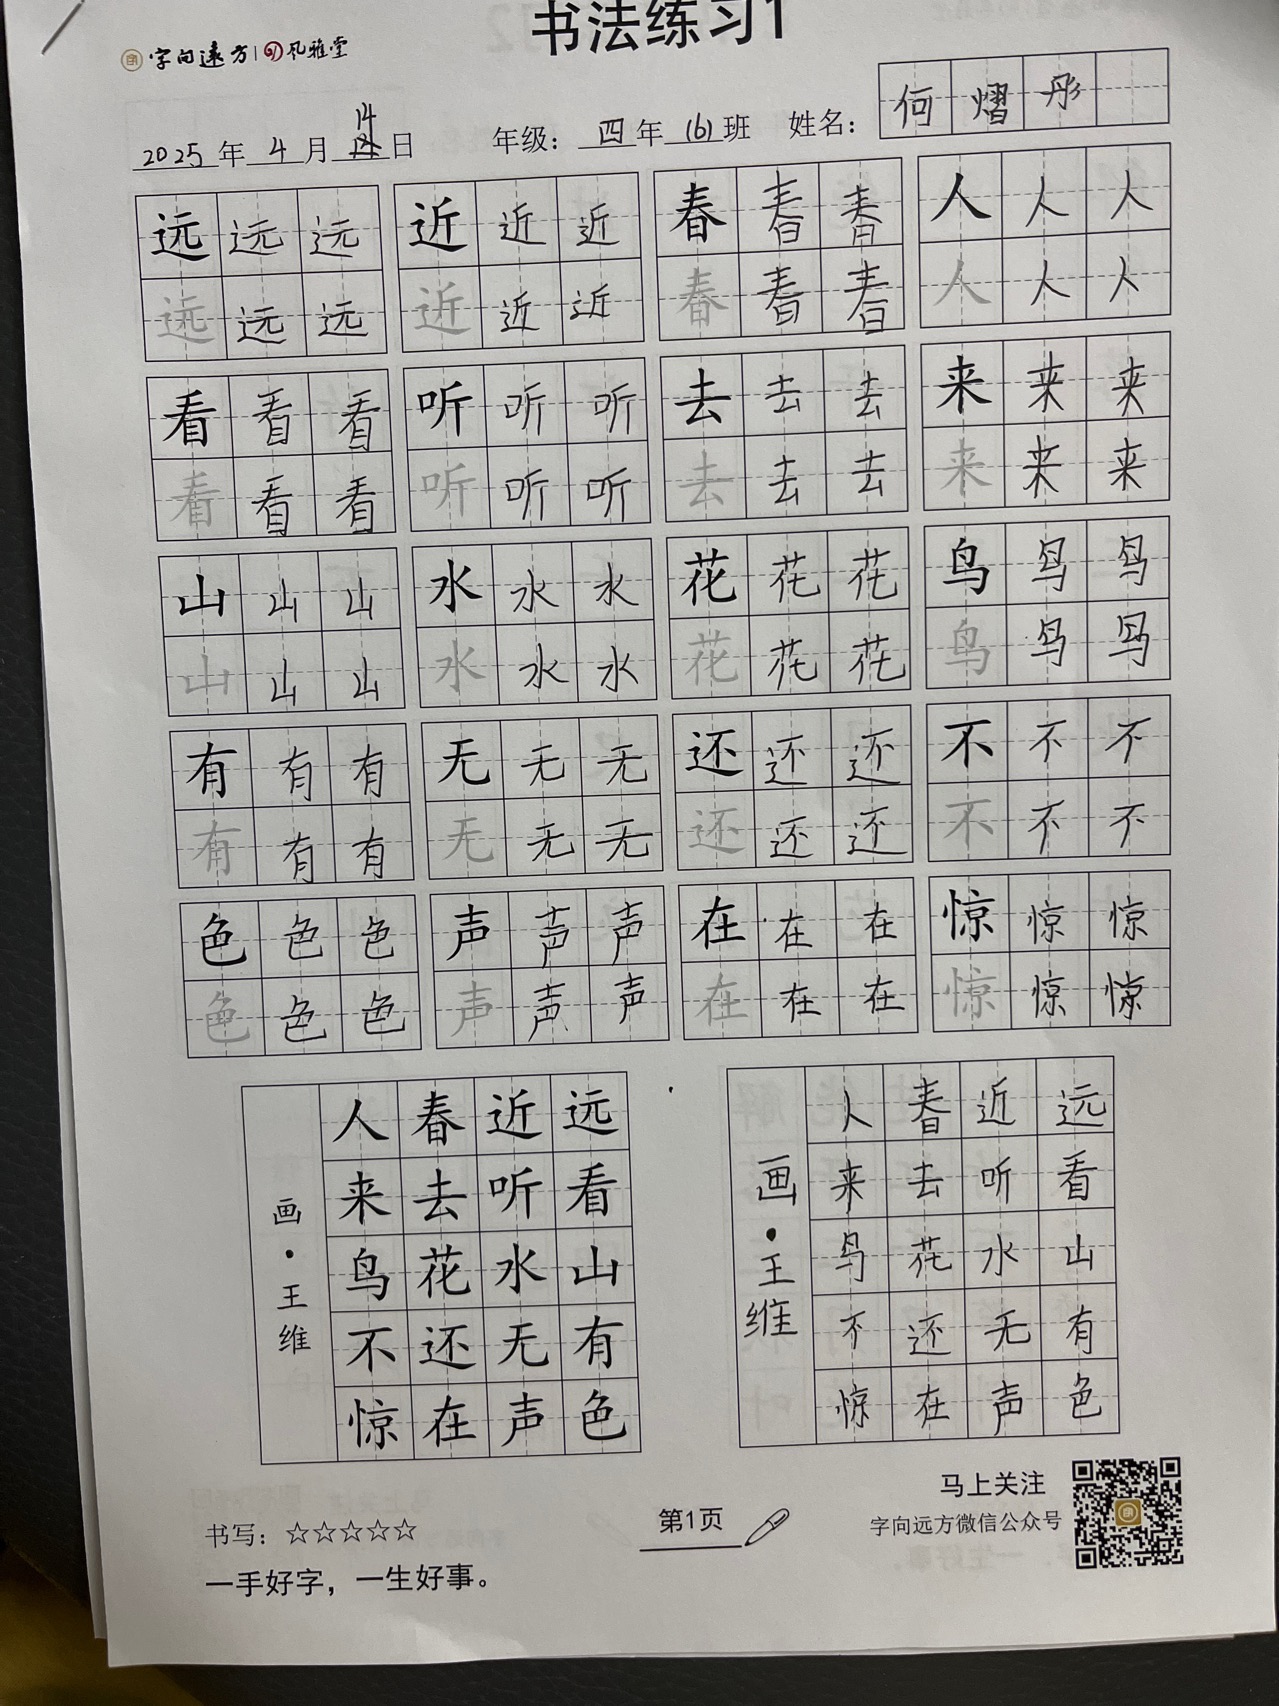 书法练习1
字向远方 风雅堂
2025年4月14日 年级：四年(6)班 姓名：何熠彤
远远远 近近近 春春春 人人人
远远远 近近近 春春春 人人人
看看看 听听听 去去去 来来来
看看看 听听听 去去去 来来来
山山山 水水水 花花花 鸟鸟鸟
山山山 水水水 花花花 鸟鸟鸟
有有有 无无无 还还还 不不不
有有有 无无无 还还还 不不不
色色色 声声声 在在在 惊惊惊
色色色 声声声 在在在 惊惊惊
远看山有色
近听水无声
春去花还在
人来鸟不惊
画·王维
远看山有色
近听水无声
春去花还在
人来鸟不惊
画·王维
书写：☆☆☆☆☆
一手好字，一生好事。
第1页
马上关注
字向远方微信公众号